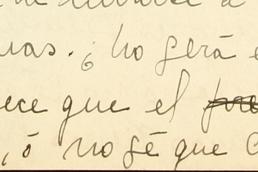 a
uas. ¿ No será e
ece que el
¿ó no sé que